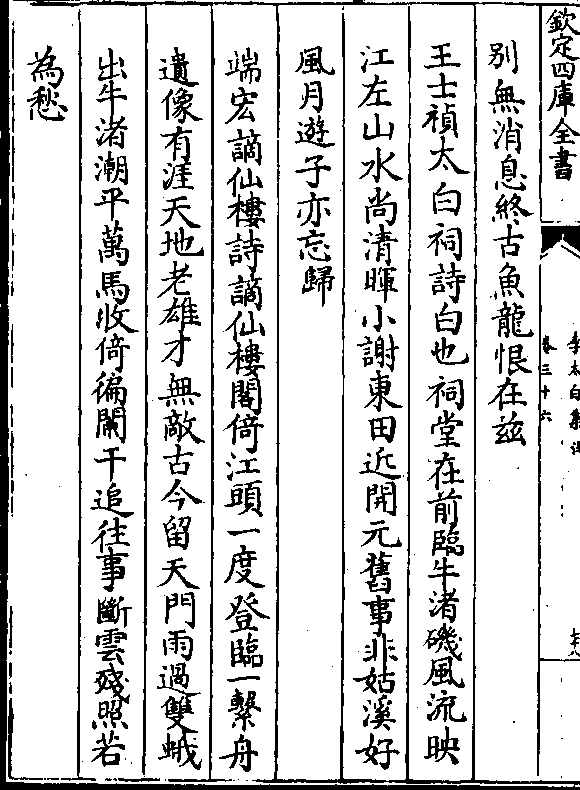 欽定四庫全書
卷三十六
別無消息終古魚龍恨在茲
王士禎太白祠詩白也祠堂在前臨牛渚磯風流映
江左山水尚清暉小謝東田近開元舊事非姑溪好
風月遊子亦忘歸
端宏謫仙樓詩謫仙樓閣倚江頭一度登臨一繫舟
遺像有涯天地老雄才無敵古今留天門雨過雙蛾
出牛渚潮平萬馬收倚徧闌干追往事斷雲殘照若
為愁